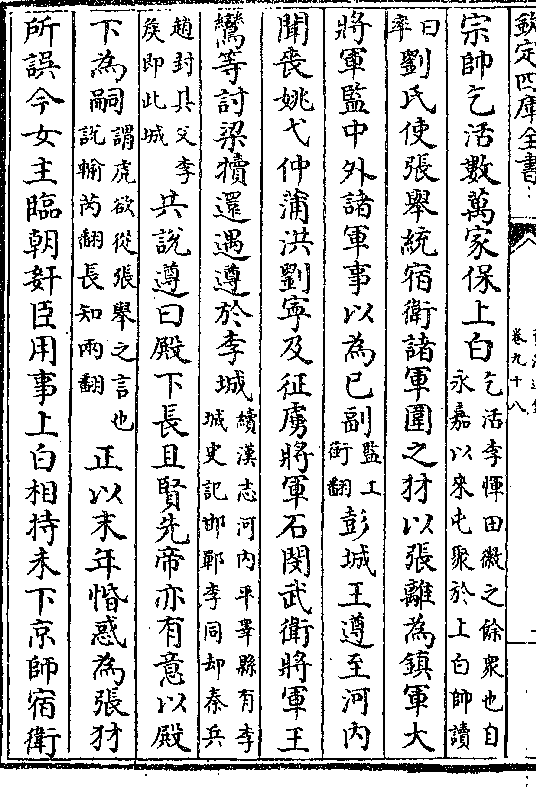 欽定四庫全書
卷九十八
宗師乞活數萬家保上白乞活李惲田徽之餘衆也自永嘉以來屯聚於上白師讀
曰率劉氏使張舉統宿衛諸軍圍之豺以張離為鎮軍大
將軍監中外諸軍事以為已副監工銜翻彭城王遵至河内
聞喪姚弋仲蒲洪劉寧及征虜將軍石閔武衛將軍王
鸞等討梁犢還遇遵於李城續漢志河内平睪縣有李城史記邯鄲李同却秦兵
趙封其父李矦即此城共說遵曰殿下長且賢先帝亦有意以殿
下為嗣謂虎欲從張舉之言也說輸芮翻長知兩翻正以末年惛惑為張豺
所誤今女主臨朝姧臣用事上白相持未下京師宿衛